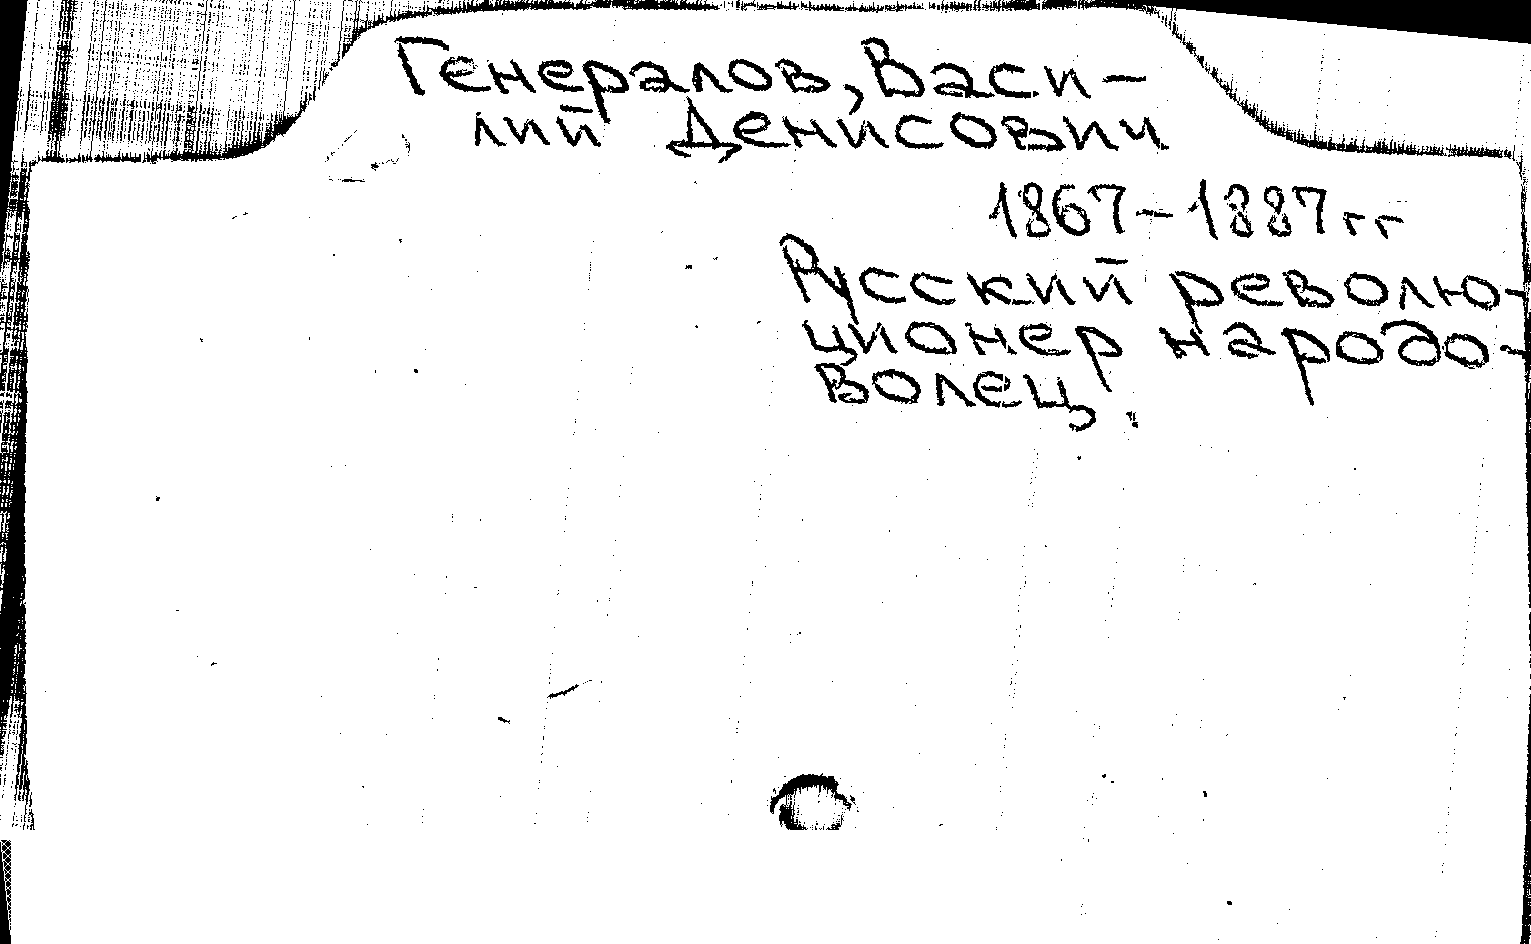 Генералов, Васи-
лий Денисович
1867-1887 гг
Русский револю-
ционер народо-
волец.